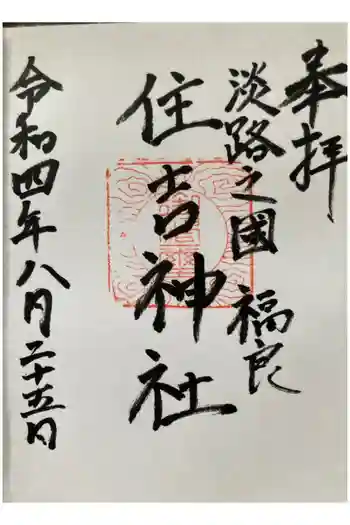 奉拝
淡路之國 福良
住吉神社
令和四年八月二十五日